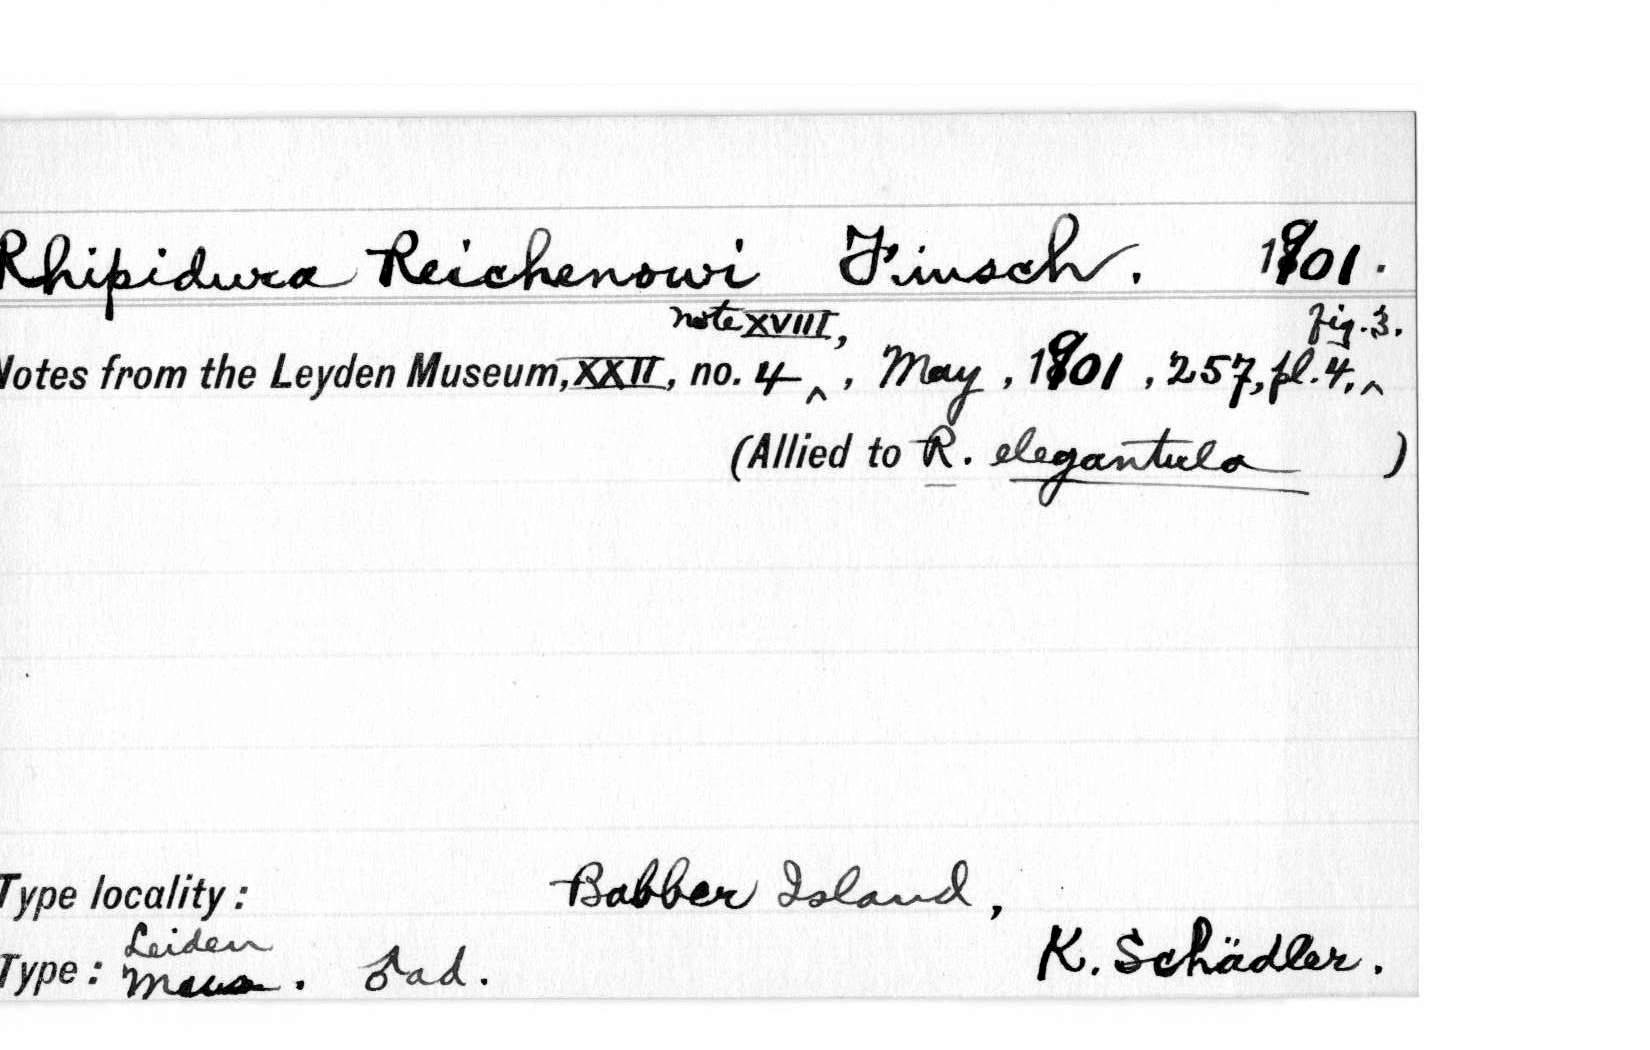 Rhipidura Reichenowi Finsch. 1901.
note XVIII, fig. 3.
Notes from the Leyden Museum, XXII, no. 4 ^, May, 1901, 257, pl. 4, ^
(Allied to R. elegantula )
Type locality: Babber Island,
Leiden
Type: Mus. ♂ ad. K. Schädler.